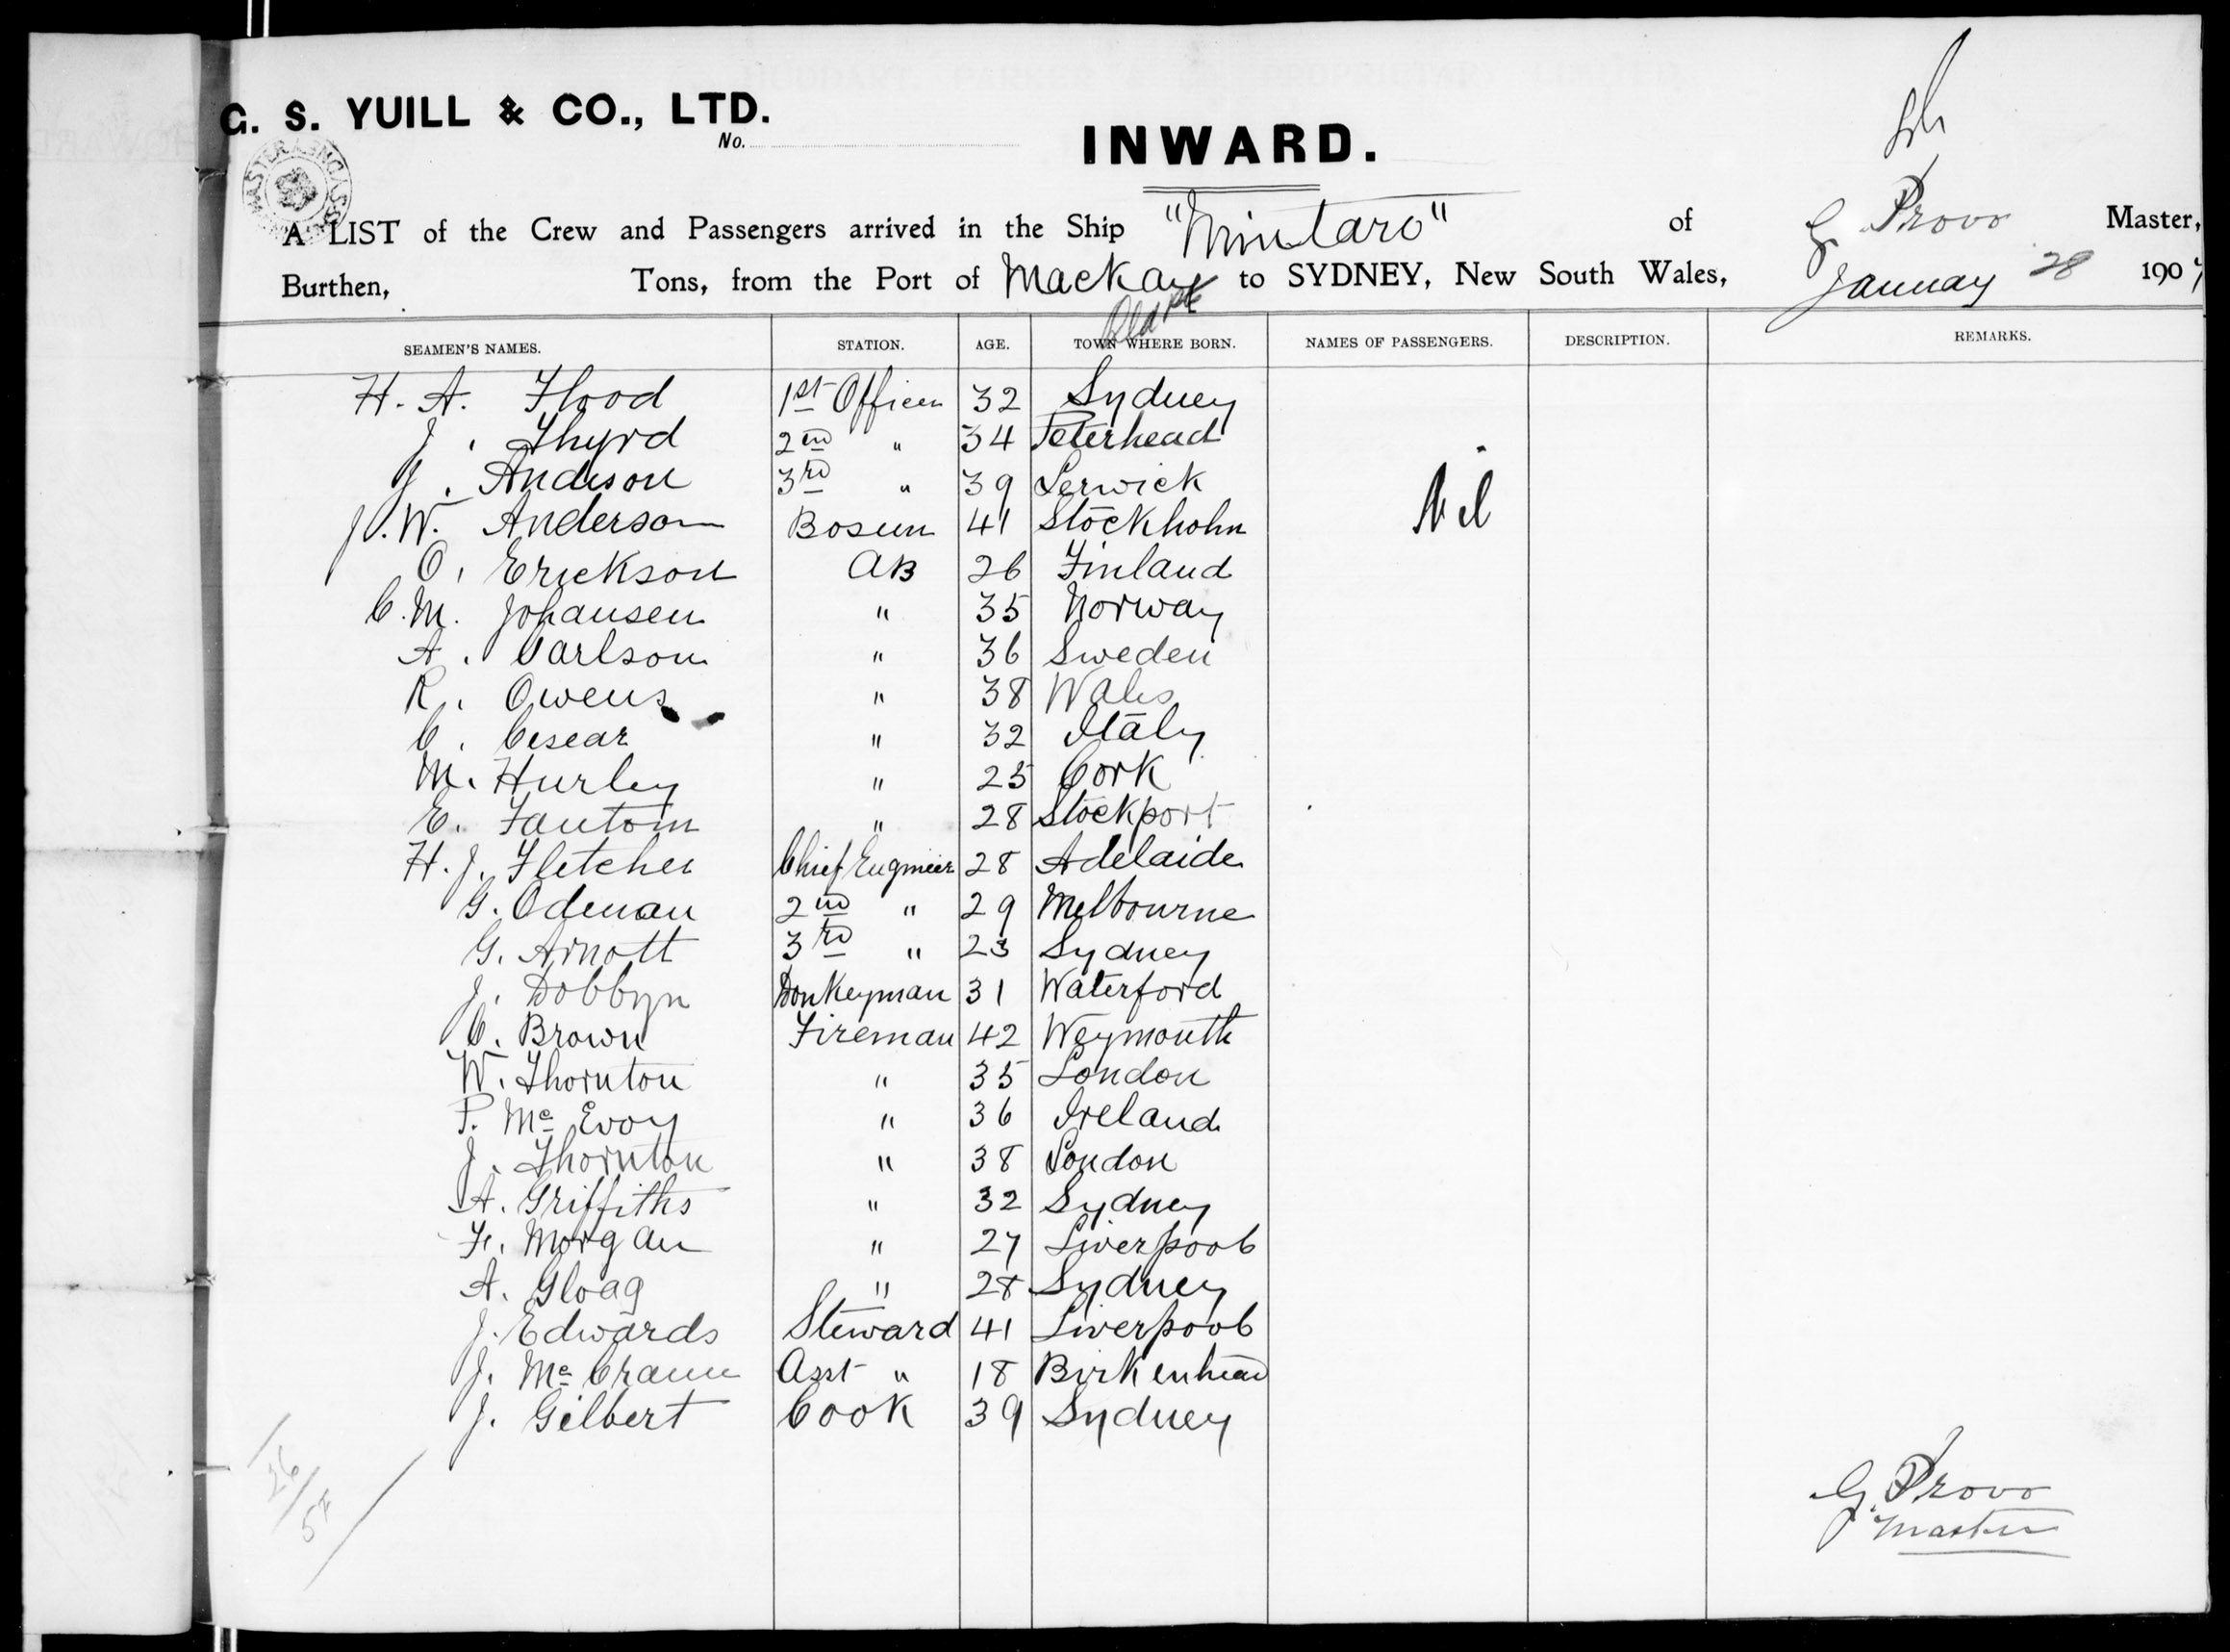 G. S. YUILL & CO., LTD.
No.
INWARD.
A LIST of the Crew and Passengers arrived in the Ship "Mintaro" of G Provo Master,
Burthen, Tons, from the Port of Mackay to SYDNEY, New South Wales, January 28 1907
SEAMEN'S NAMES. STATION. AGE. TOWN WHERE BORN. NAMES OF PASSENGERS. DESCRIPTION. REMARKS.
H. A. Flood 1st Officer 32 Sydney
J. Thyrd 2nd " 34 Peterhead
J. Andison 3rd " 39 Lerwick
J. W. Anderson Bosun 41 Stockholm Nil
O. Erickson AB 26 Finland
C. M. Johansen " 35 Norway
A. Carlson " 36 Sweden
R. Owens " 38 Wales
C. Cesear " 32 Italy
M. Hurley " 25 Cork
E. Fantom " 28 Stockport
H. J. Fletcher Chief Engineer 28 Adelaide
G. Odenan 2nd " 29 Melbourne
G. Arnott 3rd " 23 Sydney
J. Dobbyn Donkeyman 31 Waterford
C. Brown Fireman 42 Weymouth
W. Thornton " 35 London
P. Mc Evoy " 36 Ireland
J. Thornton " 38 London
A. Griffiths " 32 Sydney
F. Morgan " 27 Liverpool
A. Gloag " 28 Sydney
J. Edwards Steward 41 Liverpool
J. Mc Crann Asst " 18 Birkenhead
J. Gilbert Cook 39 Sydney
26
G. Provo
Master